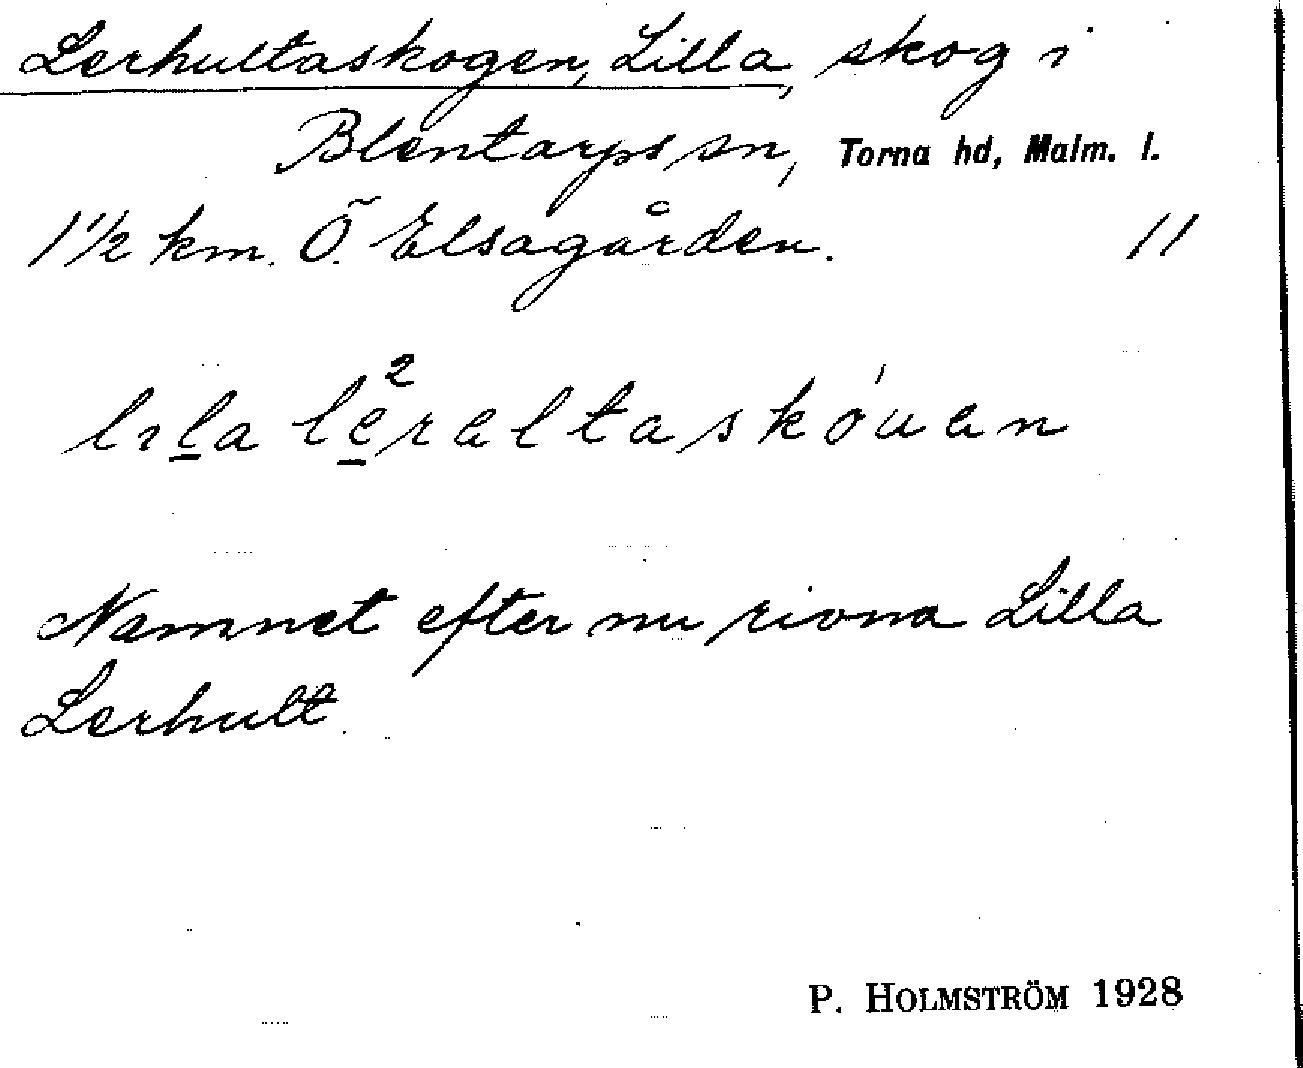 Lerhultaskogen, Lilla, skog i
Blentarps sn, Torna hd, Malm. l.
1 1/2 km. Ö. Elsagården. 11
lıla le²raltaskóuan
Namnet efter nu rivna Lilla
Lerhult.
P. HOLMSTRÖM 1928